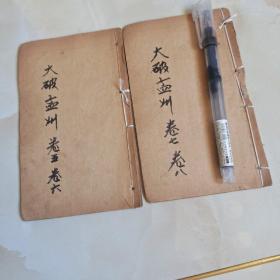 大破孟州 卷五卷六
大破孟州 卷七卷八